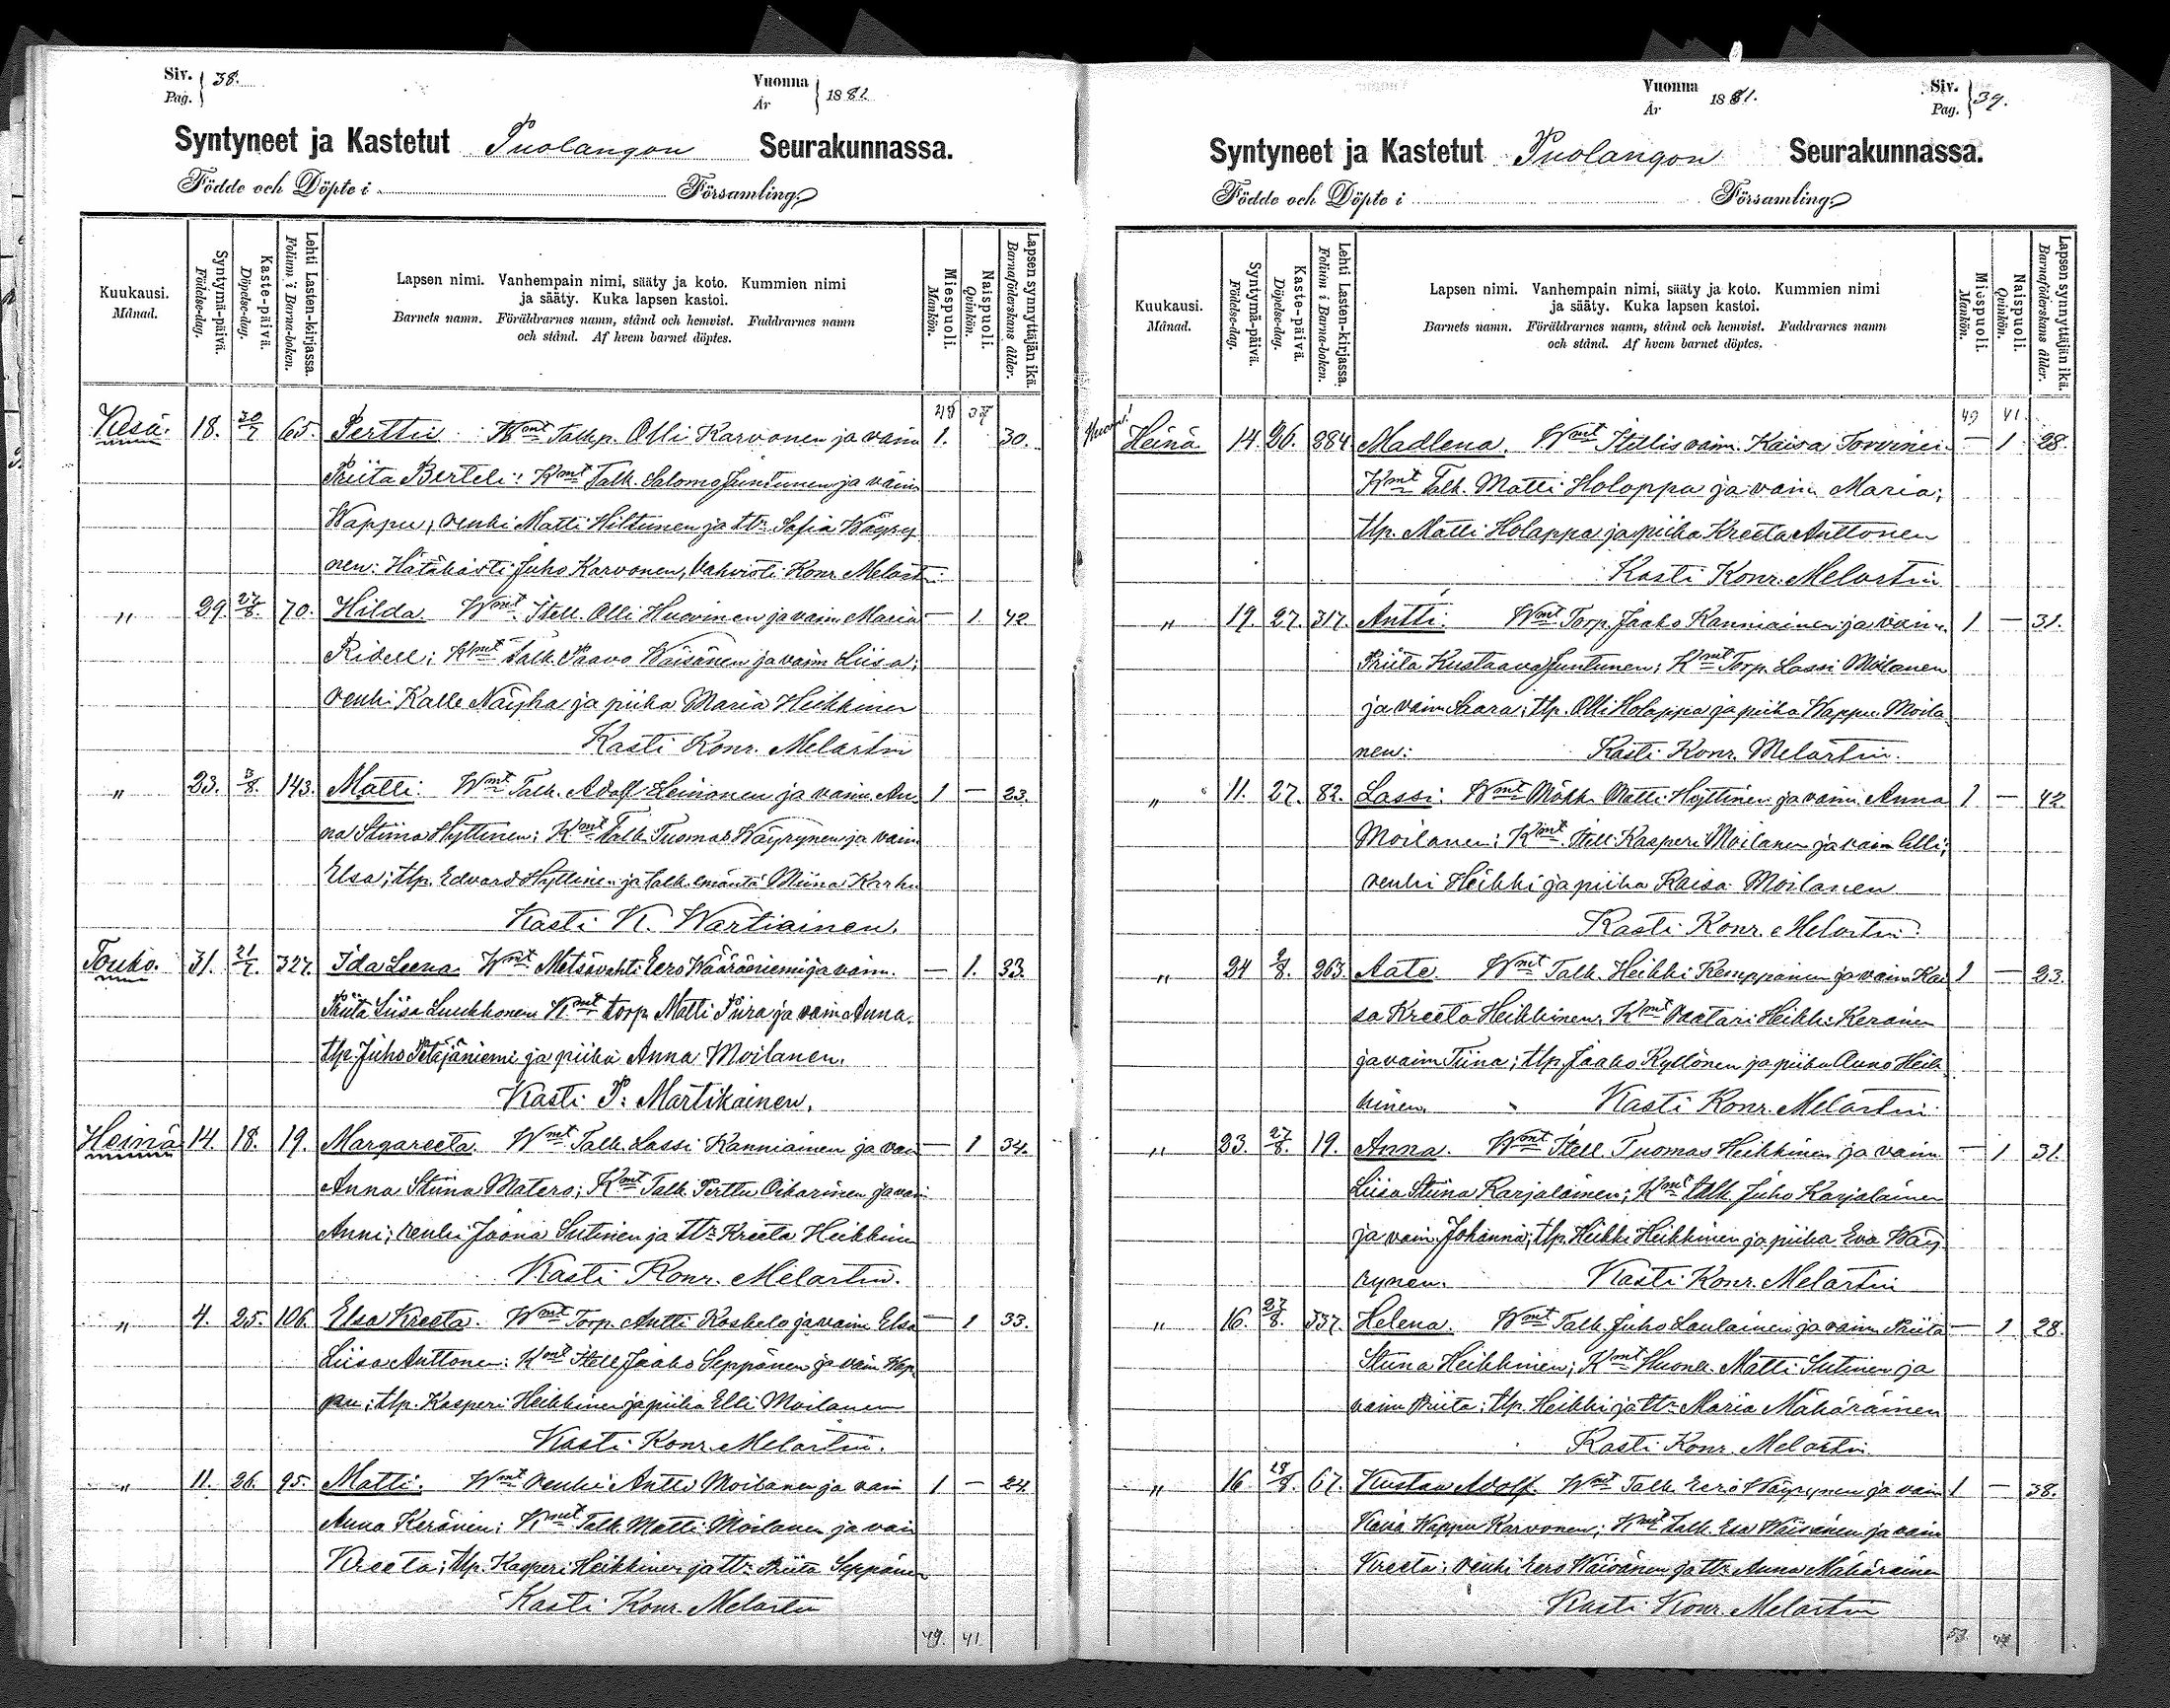 Siv. Pag. } 38.
Vuonna År } 1881.
Syntyneet ja Kastetut Puolangon Seurakunnassa.
Födde och Döpte i Församling
Kuukausi. Månad.
Syntymä-päivä. Födelse-dag.
Kaste-päivä. Döpelse-dag.
Lehti Lasten-kirjassa. Folium i Barna-boken.
Lapsen nimi. Vanhempain nimi, sääty ja koto. Kummien nimi
ja sääty. Kuka lapsen kastoi.
Barnets namn. Föräldrarnes namn, stånd och hemvist. Faddrarnes namn
och stånd. Af hvem barnet döptes.
Miespuoli. Mankön.
Naispuoli. Qvinkön.
Lapsen synnyttäjän ikä. Barnaföderskans ålder.
48 37
Kesä. 18. 30/7 65. Perttu Wmt Talk.p. Olli Karvonen ja vaim 1. 30.
Priita Berteli: Kmt Talk. Salomo Juntunen ja vaim
Wappu; renki Matti Hiltunen ja ttr Sofia Wäyry
nen: Hätäkasti Juho Karvonen, Vahvisti Konr Melart:
" 29. 27/8. 70. Hilda. Wmt Itell. Olli Huovinen ja vaim Maria — 1. 42
Ridell; Kmt Talk. Paavo Wäisänen ja vaim Liisa;
renki Kalle Näykä ja piika Maria Heikkinen
Kasti Konr. Melartin
" 23. 5/8. 143. Matti. Wmt Talk. Adolf Leinonen ja vaim An 1 — 23.
na Stiina Hyttinen; Kmt Talk. Tuomas Wäyrynen ja vaim
Elsa; tlp. Edvard Hyttinen ja talk. emäntä Miina Karhu
Kasti K. Wartiainen.
Touko. 31. 21/7. 327. Ida Leena. Wmt Metsävahti Eero Wääräniemi ja vaim. — 1. 33.
Priita Liisa Luukkonen Kmt torp. Matti Piira ja vaim Anna.
tlp. Juho Petäjäniemi ja piika Anna Moilanen.
Kasti P. Martikainen.
Heinä 14. 18. 19. Margareeta. Wmt Talk. Lassi Kanniainen ja vai — 1 34.
Anna Stiina Matero; Kmt Talk. Perttu Oikarinen ja vaim
Anni; renki Jaana Sutinen ja ttr Kreeta Heikkine
Kasti Konr. Melartin.
" 4. 25. 106. Elsa Kreeta. Wmt Torp. Antti Koskelo ja vaim Elsa — 1 33.
Liisa Anttone: Kmt Itell. Jaako Seppänen ja vaim Wap
pu; tlp. Kasperi Heikkinen ja piika Elli Moilanen
Kasti Konr. Melartin.
" 11. 26. 95. Matti. Wmt renki Antti Moilanen ja vaim 1 — 24.
Anna Keränen; Kmt Talk. Matti Moilanen ja vai
Kreeta; tlp. Kasperi Heikkinen ja ttr Priita Seppänen
Kasti Konr. Melartin
49. 41.
Vuonna År } 1881.
Siv. Pag. } 39.
Syntyneet ja Kastetut Puolangon Seurakunnassa.
Födde och Döpte i Församling
Kuukausi. Månad.
Syntymä-päivä. Födelse-dag.
Kaste-päivä. Döpelse-dag.
Lehti Lasten-kirjassa. Folium i Barna-boken.
Lapsen nimi. Vanhempain nimi, sääty ja koto. Kummien nimi
ja sääty. Kuka lapsen kastoi.
Barnets namn. Föräldrarnes namn, stånd och hemvist. Faddrarnes namn
och stånd. Af hvem barnet döptes.
Miespuoli. Mankön.
Naispuoli. Qvinkön.
Lapsen synnyttäjän ikä. Barnaföderskans ålder.
49 41.
Heinä 14. 26. 384. Madlena. Wmt Itellisvaim. Kaisa Torvinen — 1 28.
Kmt Talk. Matti Holappa ja vaim Maria;
tlp. Matti Holappa ja piika Kreeta Anttonen
Kasti Konr. Melartin
" 19. 27. 317. Antti. Wmt Torp. Jaako Kanniainen ja vaim. 1 — 31.
Priita Kustaava Juntunen; Kmt Torp. Lassi Moilanen
ja vaim Saara; tlp. Olli Holappa ja piika Wappu Moila
nen: Kasti Konr. Melartin.
" 11. 27. 82. Lassi. Wmt Mökk. Matti Hyttinen ja vaim Anna 1 — 42.
Moilanen; Kmt Itell. Kasperi Moilanen ja vaim Elli;
renki Heikki ja piika Kaisa Moilanen
Kasti Konr. Melartin.
" 24 2/8. 263. Aate. Wmt Talk. Heikki Kemppainen ja vaim Kai 1 — 23.
sa Kreeta Heikkinen, Kmt Räätäri Heikki Keränen
ja vaim Tiina; tlp. Jaako Kyllönen ja piika Auno Heik
kinen. Kasti Konr. Melartin.
" 23. 27/8. 19. Anna. Wmt Itell. Tuomas Heikkinen ja vaim — 1 31.
Liisa Stiina Karjalainen; Kmt talk. Juho Karjalainen
ja vaim Johanna; tlp. Heikki Heikkinen ja piika Eva Wäy
rynen. Kasti Konr. Melartin
" 16. 27/8. 337. Helena. Wmt Talk. Juho Laulainen ja vaim Priita — 1 28.
Stiina Heikkinen; Kmt Huonek. Matti Sutinen ja
vaim Priita; tlp. Heikki ja ttr Maria Mähäräinen
Kasti Konr. Melartin
" 16. 28/8. 67. Kustav Adolf. Wmt Talk. Eero Wäyrynen ja vaim 1 — 38.
Wappu Karvonen; Kmt talk. Esa Wäisänen ja vaim
Kreeta; renki Eero Wäisänen ja ttr Anna Mähäräinen
Kasti Konr. Melartin
53. 44